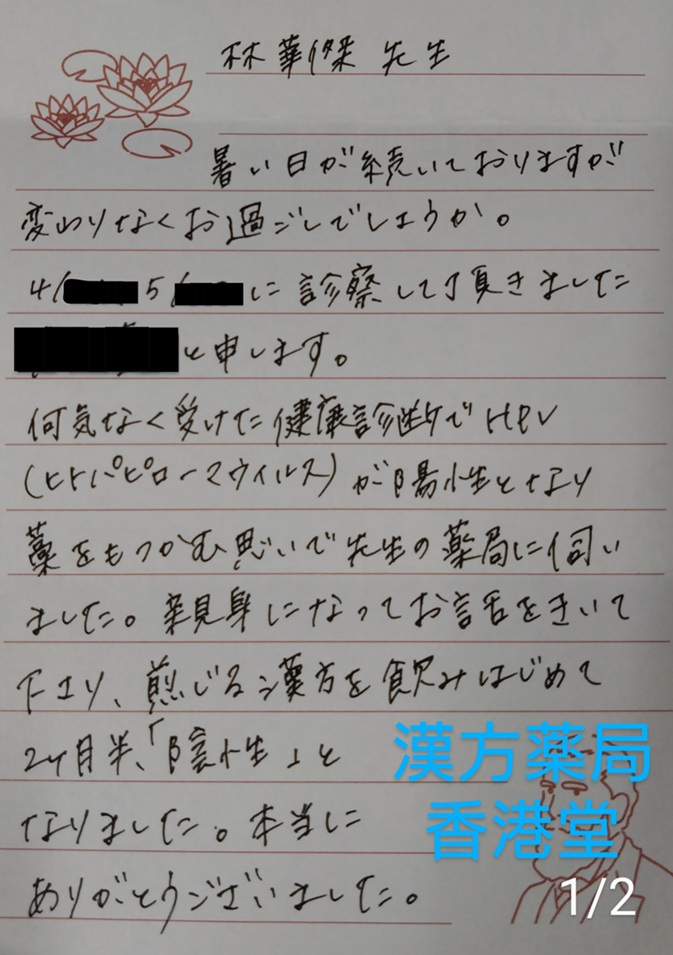 林華傑 先生
暑い日が続いておりますが
変わりなくお過ごしでしょうか。
4/ 5/ に診察して頂きました
と申します。
何気なく受けた健康診断でHPV
(ヒトパピローマウイルス)が陽性となり
藁をもつかむ思いで先生の薬局に伺い
ました。親身になってお話をきいて
下さり、煎じる漢方を飲みはじめて
2ヶ月半、「陰性」と
なりました。本当に
ありがとうございました。
漢方薬局
香港堂
1/2